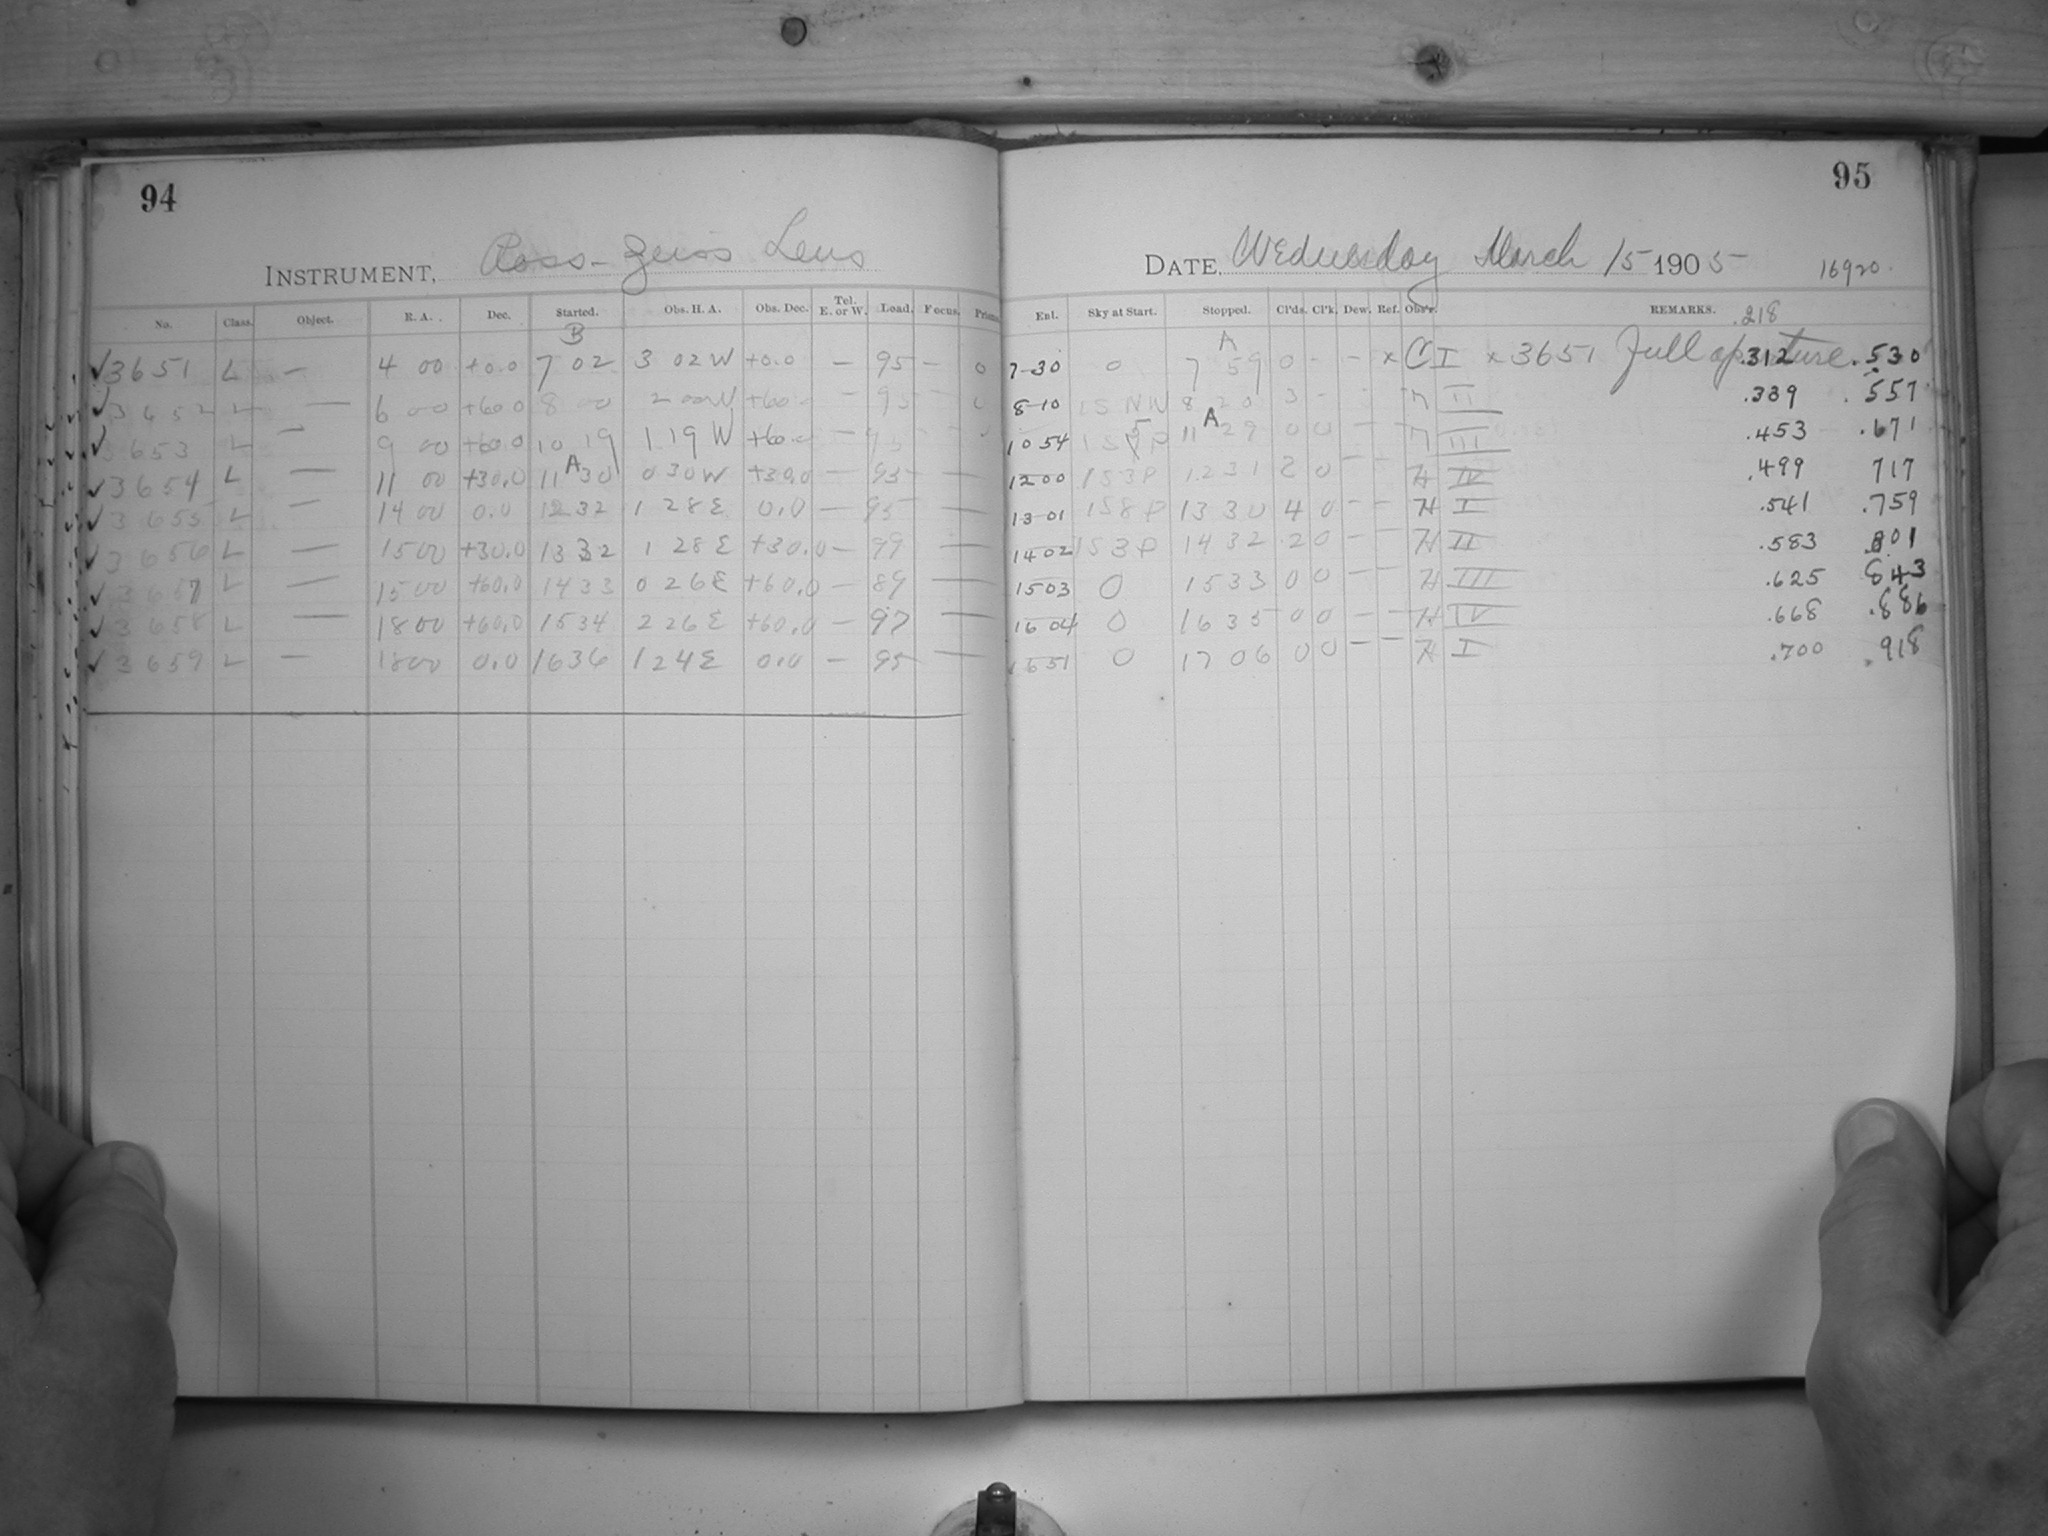 94
INSTRUMENT, Ross-Zeiss Lens
No. Class. Object. R. A. Dec. Started. Obs. H. A. Obs. Dec. Tel. E. or W. Load. Focus. Prism.
B
3651 L — 4 00 +0.0 7 02 3 02 W +0.0 — 95 — 0
3652 L — 6 00 +60.0 8 00 2 00 W +60. — 95
3653 L — 9 00 +60.0 10 19 1 19 W +60. —
A
3654 L — 11 00 +30.0 11 30 0 30 W +30.0 — 95 —
3655 L — 14 00 0.0 12 32 1 28 E 0.0 — 95 —
3656 L — 15 00 +30.0 13 32 1 28 E +30.0 — 99 —
3657 L — 15 00 +60.0 14 33 0 26 E +60.0 — 89 —
3658 L — 18 00 +60.0 15 34 2 26 E +60.0 — 97 —
3659 L — 18 00 0.0 16 36 1 24 E 0.0 — 95 —
95
DATE, Wednesday March 15 1905 16920.
Ent. Sky at Start. Stopped. Cl'ds. Cl'k. Dew. Ref. Obs'r. REMARKS. .218
A
7-30 0 7 59 0 - - x C I x 3651 Full aperture .312 .530
8-10 15 NW 8 20 3 - II .339 .557
A
10 54 11 29 0 0 — — III .453 .671
12 00 153P 12 31 2 0 — — H IV .499 717
13 01 158P 13 30 4 0 — — H I .541 .759
14 02 153P 14 32 20 — — H II .583 .801
15 03 0 15 33 0 0 — — H III .625 843
16 04 0 16 35 0 0 — — H IV .668 .886
16 51 0 17 06 0 0 — — H I .700 .918